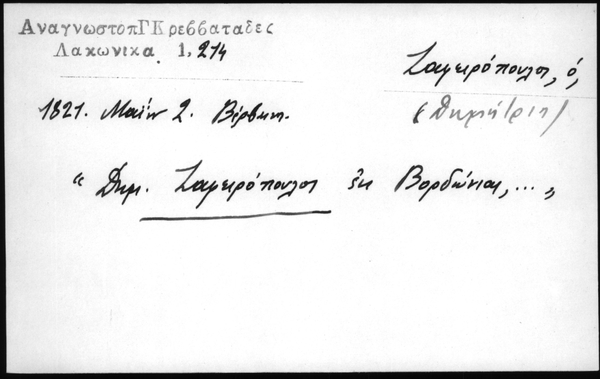 ΑναγνωστοπΓΚρεββαταδες
Λακωνικα. 1, 214
Σαμειρόπουλος, ὁ,
(Δημήτριος)
1821. Μαΐου 2. Βέρβενα.
"Δημ. Σαμειρόπουλος ἐκ Βορδώνιας, ... „